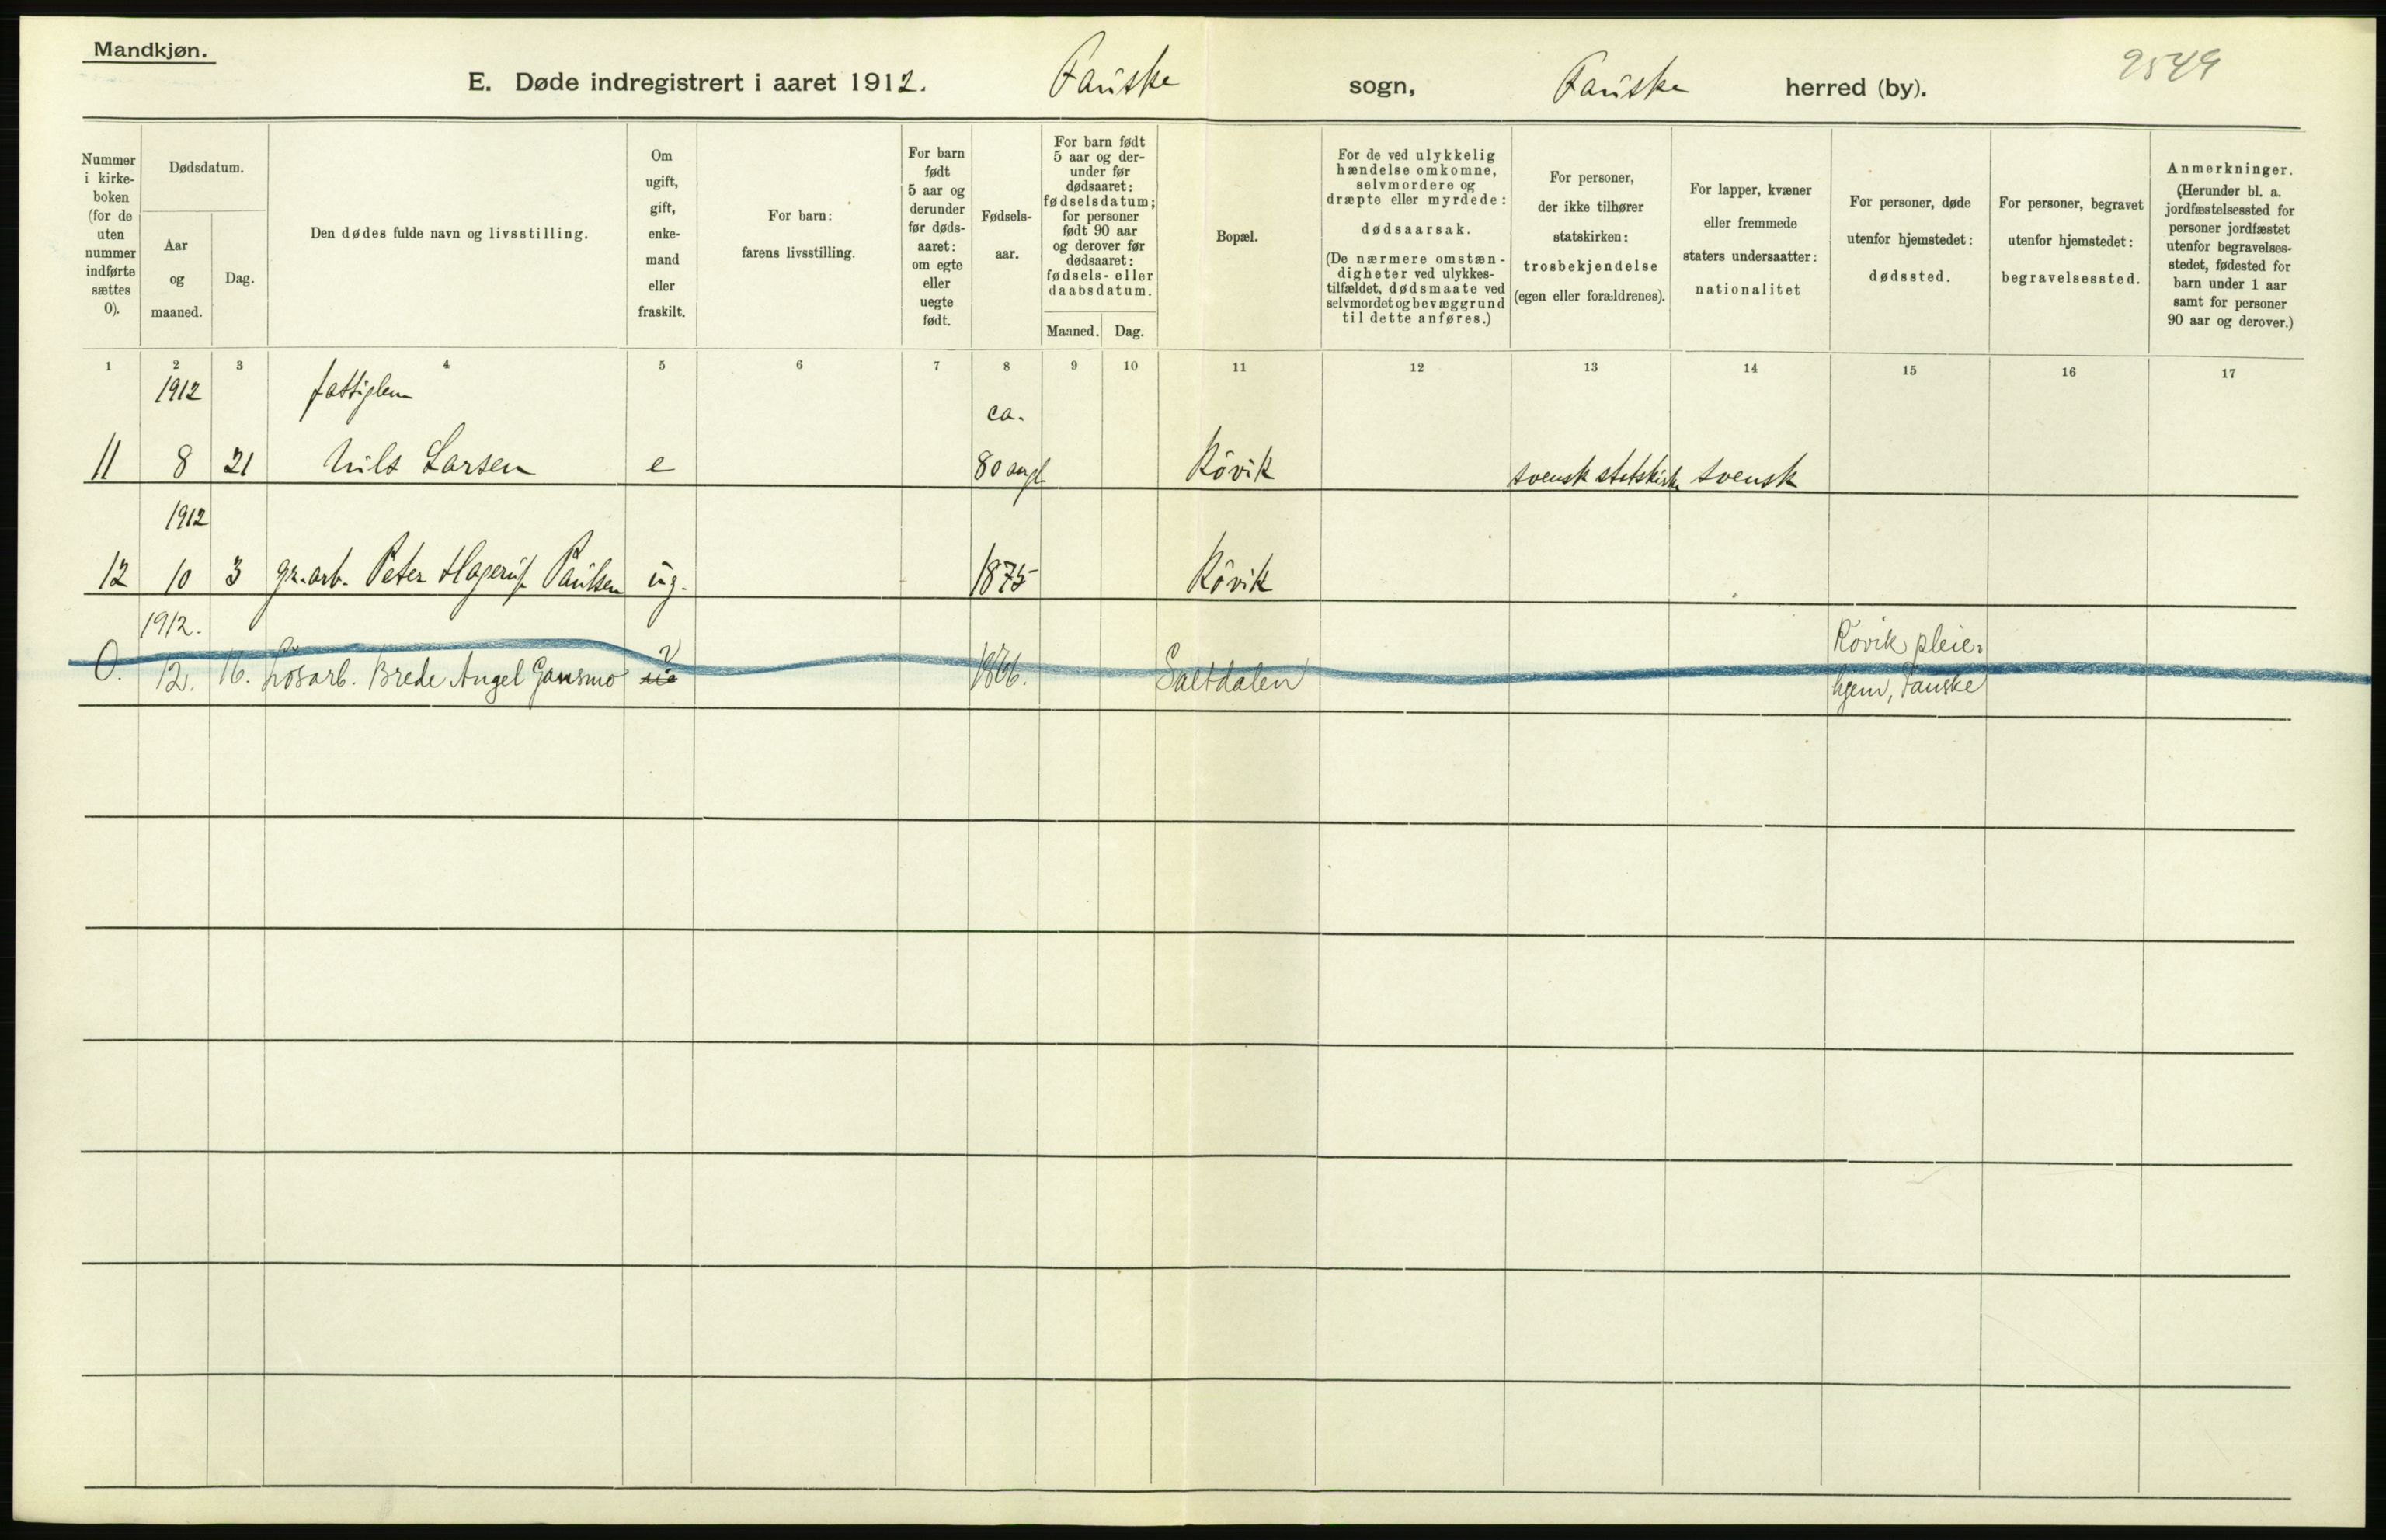 Mandkjøn.
E. Døde indregistrert i aaret 1912. Fauske sogn, Fauske herred (by). 2549
Nummer i kirke- boken (for de uten nummer indførte sættes 0).
Dødsdatum.
Aar og maaned.
Dag.
Den dødes fulde navn og livsstilling.
Om ugift, gift, enke- mand eller fraskilt.
For barn: farens livsstilling.
For barn født 5 aar og derunder før døds- aaret: om egte eller uegte født.
Fødsels- aar.
For barn født 5 aar og der- under før dødsaaret: fødselsdatum; for personer født 90 aar og derover før dødsaaret: fødsels- eller daabsdatum.
Maaned. Dag.
Bopæl.
For de ved ulykkelig hændelse omkomne, selvmordere og dræpte eller myrdede: dødsaarsak. (De nærmere omstæn- digheter ved ulykkes- tilfældet, dødsmaate ved selvmordet og bevæggrund til dette anføres.)
For personer, der ikke tilhører statskirken: trosbekjendelse (egen eller forældrenes).
For lapper, kvæner eller fremmede staters undersaatter: nationalitet
For personer, døde utenfor hjemstedet: dødssted.
For personer, begravet utenfor hjemstedet: begravelsessted.
Anmerkninger. (Herunder bl. a. jordfæstelsessted for personer jordfæstet utenfor begravelses- stedet, fødested for barn under 1 aar samt for personer 90 aar og derover.)
1 2 3 4 5 6 7 8 9 10 11 12 13 14 15 16 17
1912 fattiglem ca.
11 8 21 Nils Larsen e 80 aar gl. Rövik svensk statskirke svensk
1912
12 10 3 gr.arb. Peter Hagerup Paulsen ug. 1875 Rövik
1912. Rövik pleie-
0. 12. 16. Lösarb. Brede Angel Gansmo 1866. Saltdalen hjem, Fauske